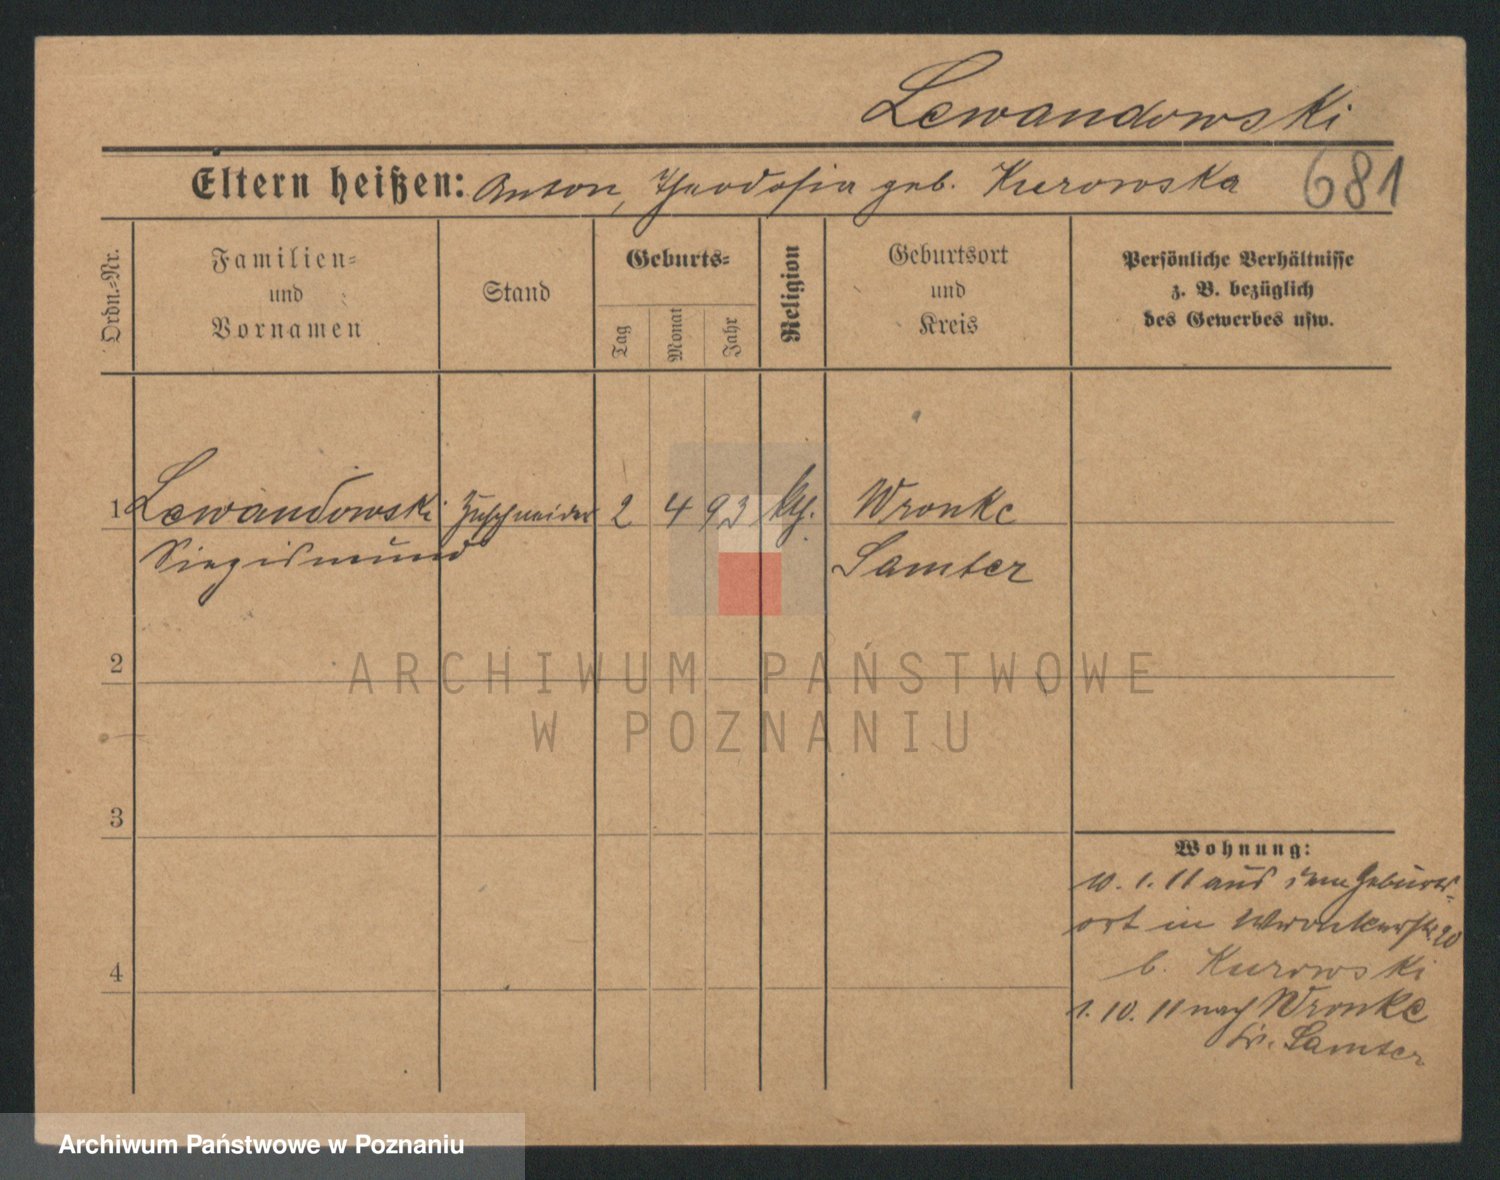 Lewandowski
Eltern heißen: Anton, Theodosia geb. Kurowska
681
Ordn.-Nr.
Familien-
und
Vornamen
Stand
Geburts-
Tag
Monat
Jahr
Religion
Geburtsort
und
Kreis
Persönliche Verhältnisse
z. B. bezüglich
des Gewerbes usw.
1 Lewandowski Zuschneider 2 4 93 kth. Wronke
Siegismund Samter
ARCHIWUM PAŃSTWOWE
W POZNANIU
2
3
4
Wohnung:
10. 1. 11 aus dem Geburts-
ort in Wronkerstr. 20
b. Kurowski
1. 10. 11 nach Wronke
Kr. Samter
Archiwum Państwowe w Poznaniu